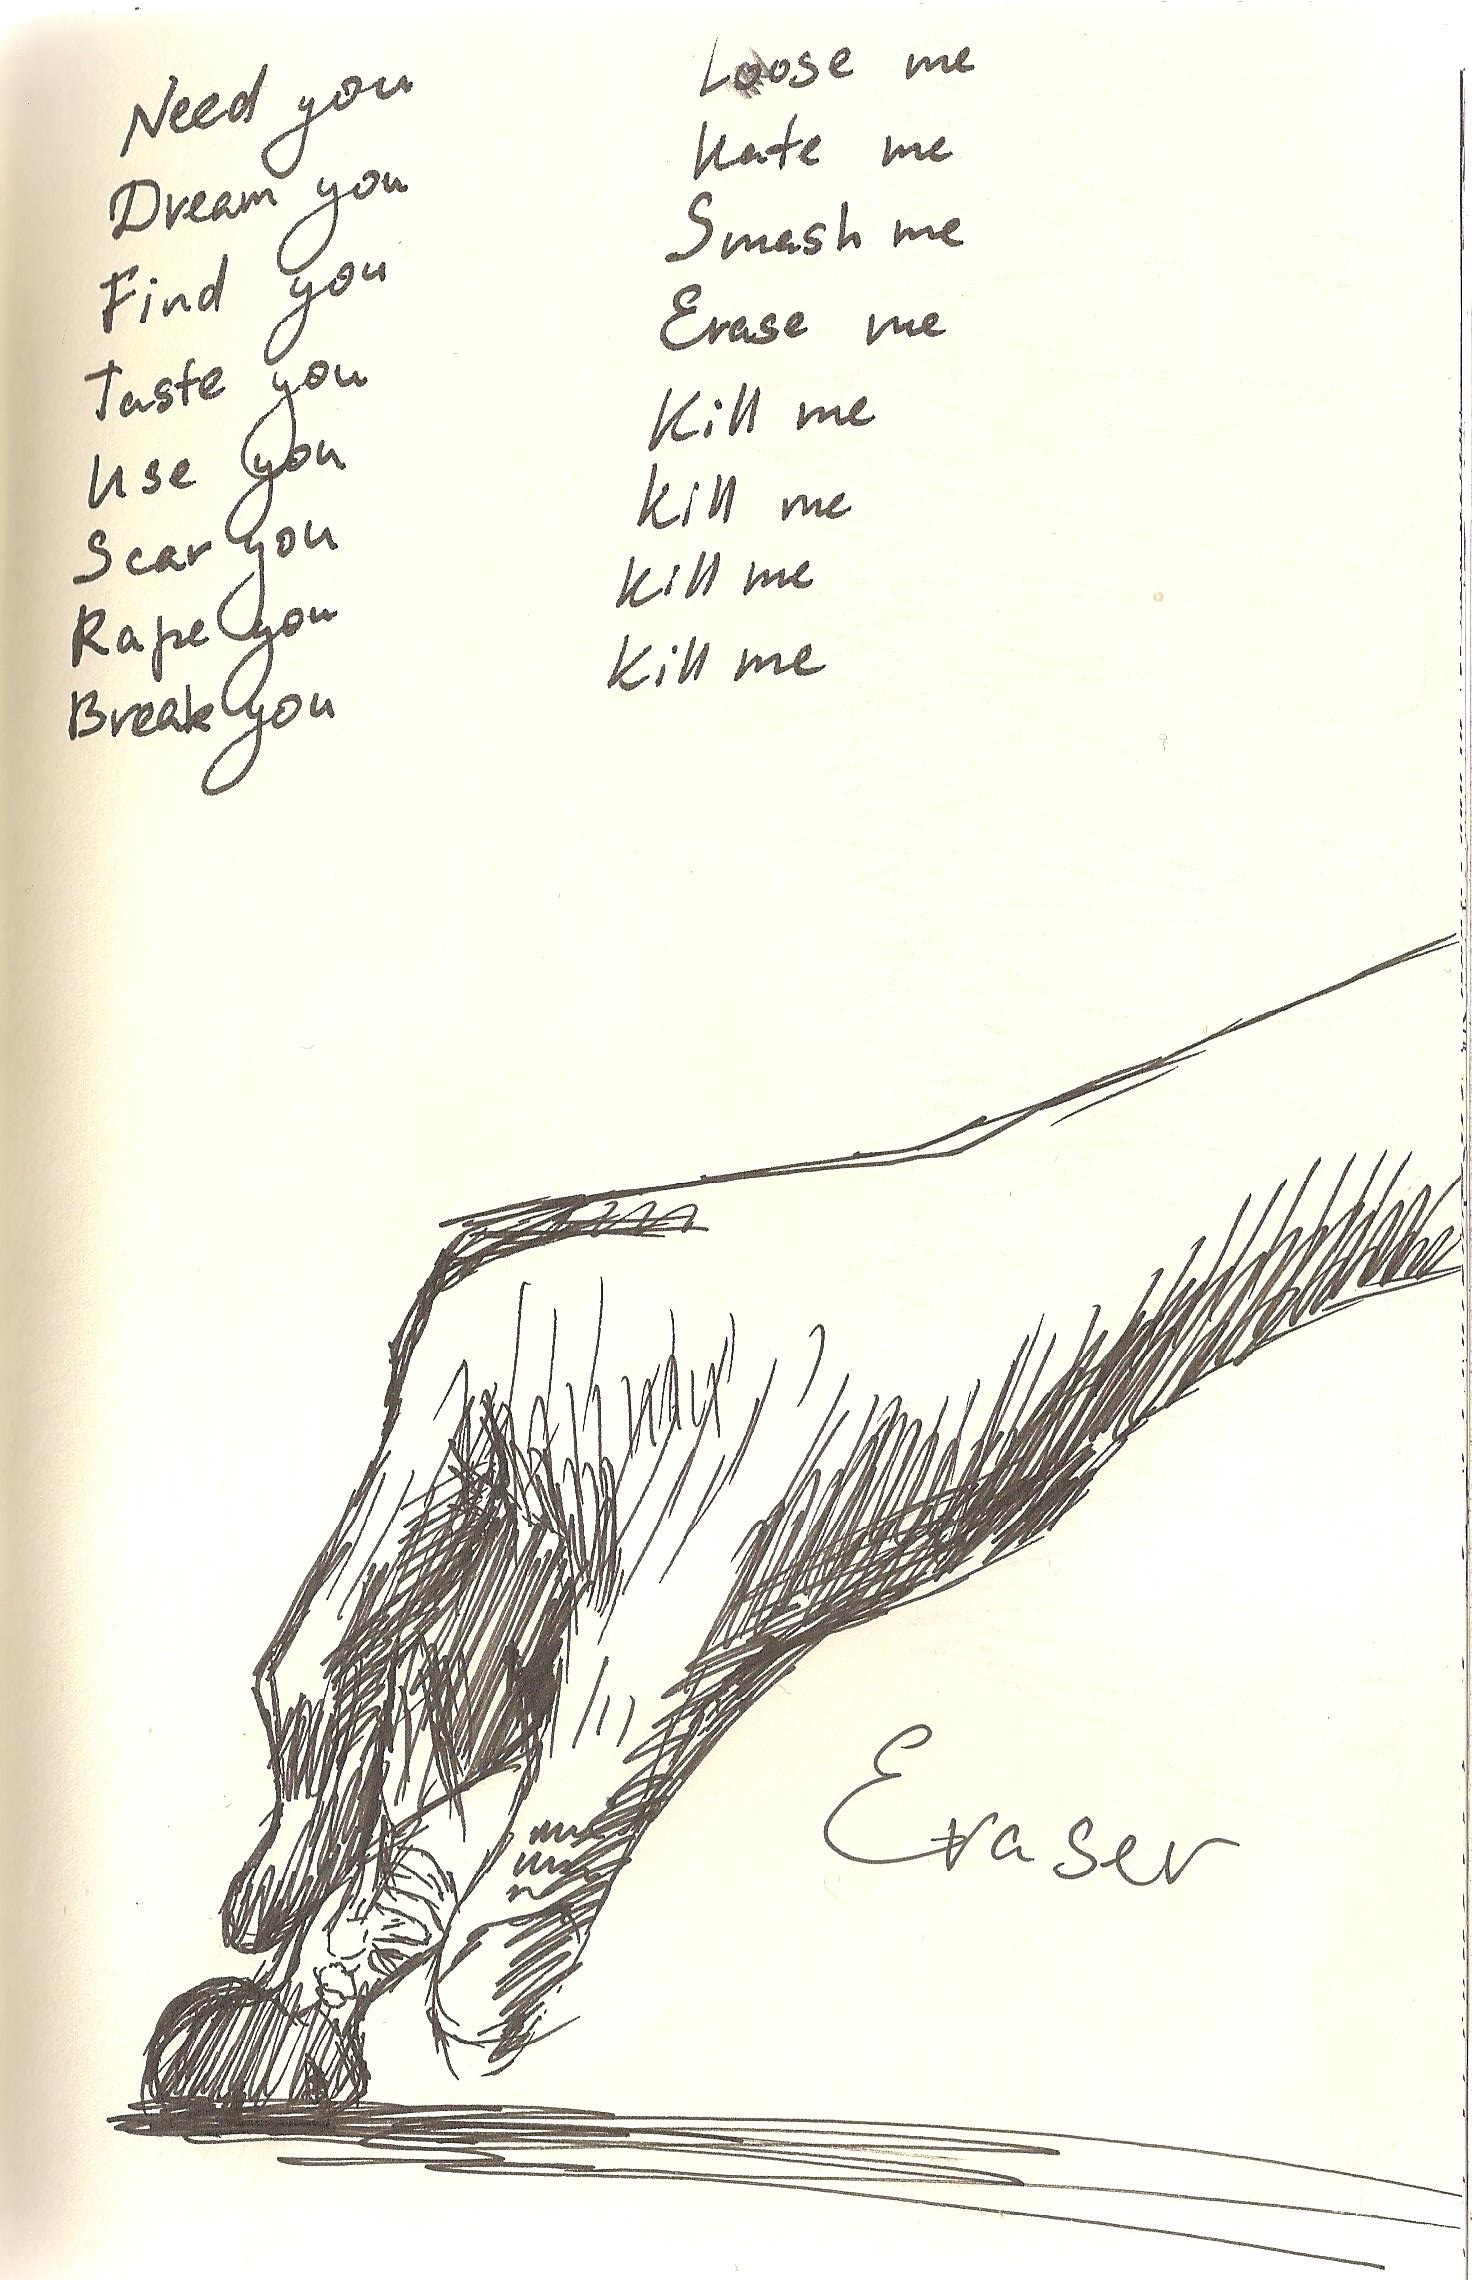 Need you
Dream you
Find you
Taste you
Use you
Scar you
Rape you
Break you
Loose me
Hate me
Smash me
Erase me
Kill me
Kill me
Kill me
Kill me
Eraser